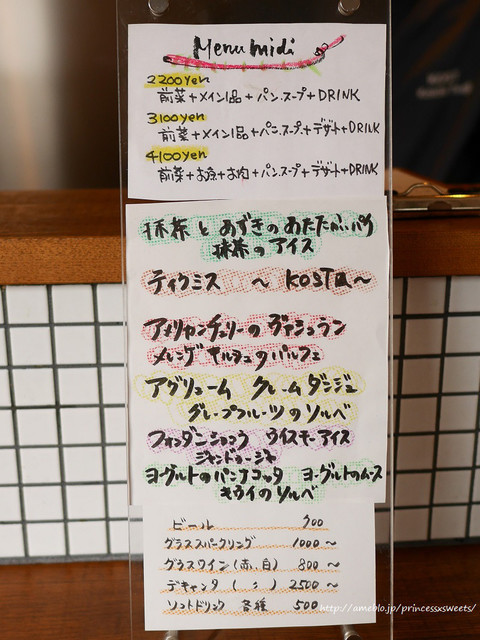 Menu midi
2200yen
前菜+メイン1品+パン.スープ+DRINK
3100yen
前菜+メイン1品+パン.スープ+デザート+DRINK
4100yen
前菜+お魚+お肉+パン.スープ+デザート+DRINK
抹茶とあずきのあたたかいパイ
抹茶のアイス
ティラミス ～KOSTA～
アメリカンチェリーのヴァシュラン
メレンゲ のパルフェ
アグリューム クレームダンジュ
グレープフルーツのソルベ
フォンダンショコラ ウイスキーアイス
ジャンドゥージャ
ヨーグルトのパンナコッタ ヨーグルトのムース
キウイのソルベ
ビール 700
グラススパークリング 1000～
グラスワイン(赤.白) 800～
デキャンタ ( 〃 ) 2500～
ソフトドリンク 各種 500
http://ameblo.jp/princessxsweets/